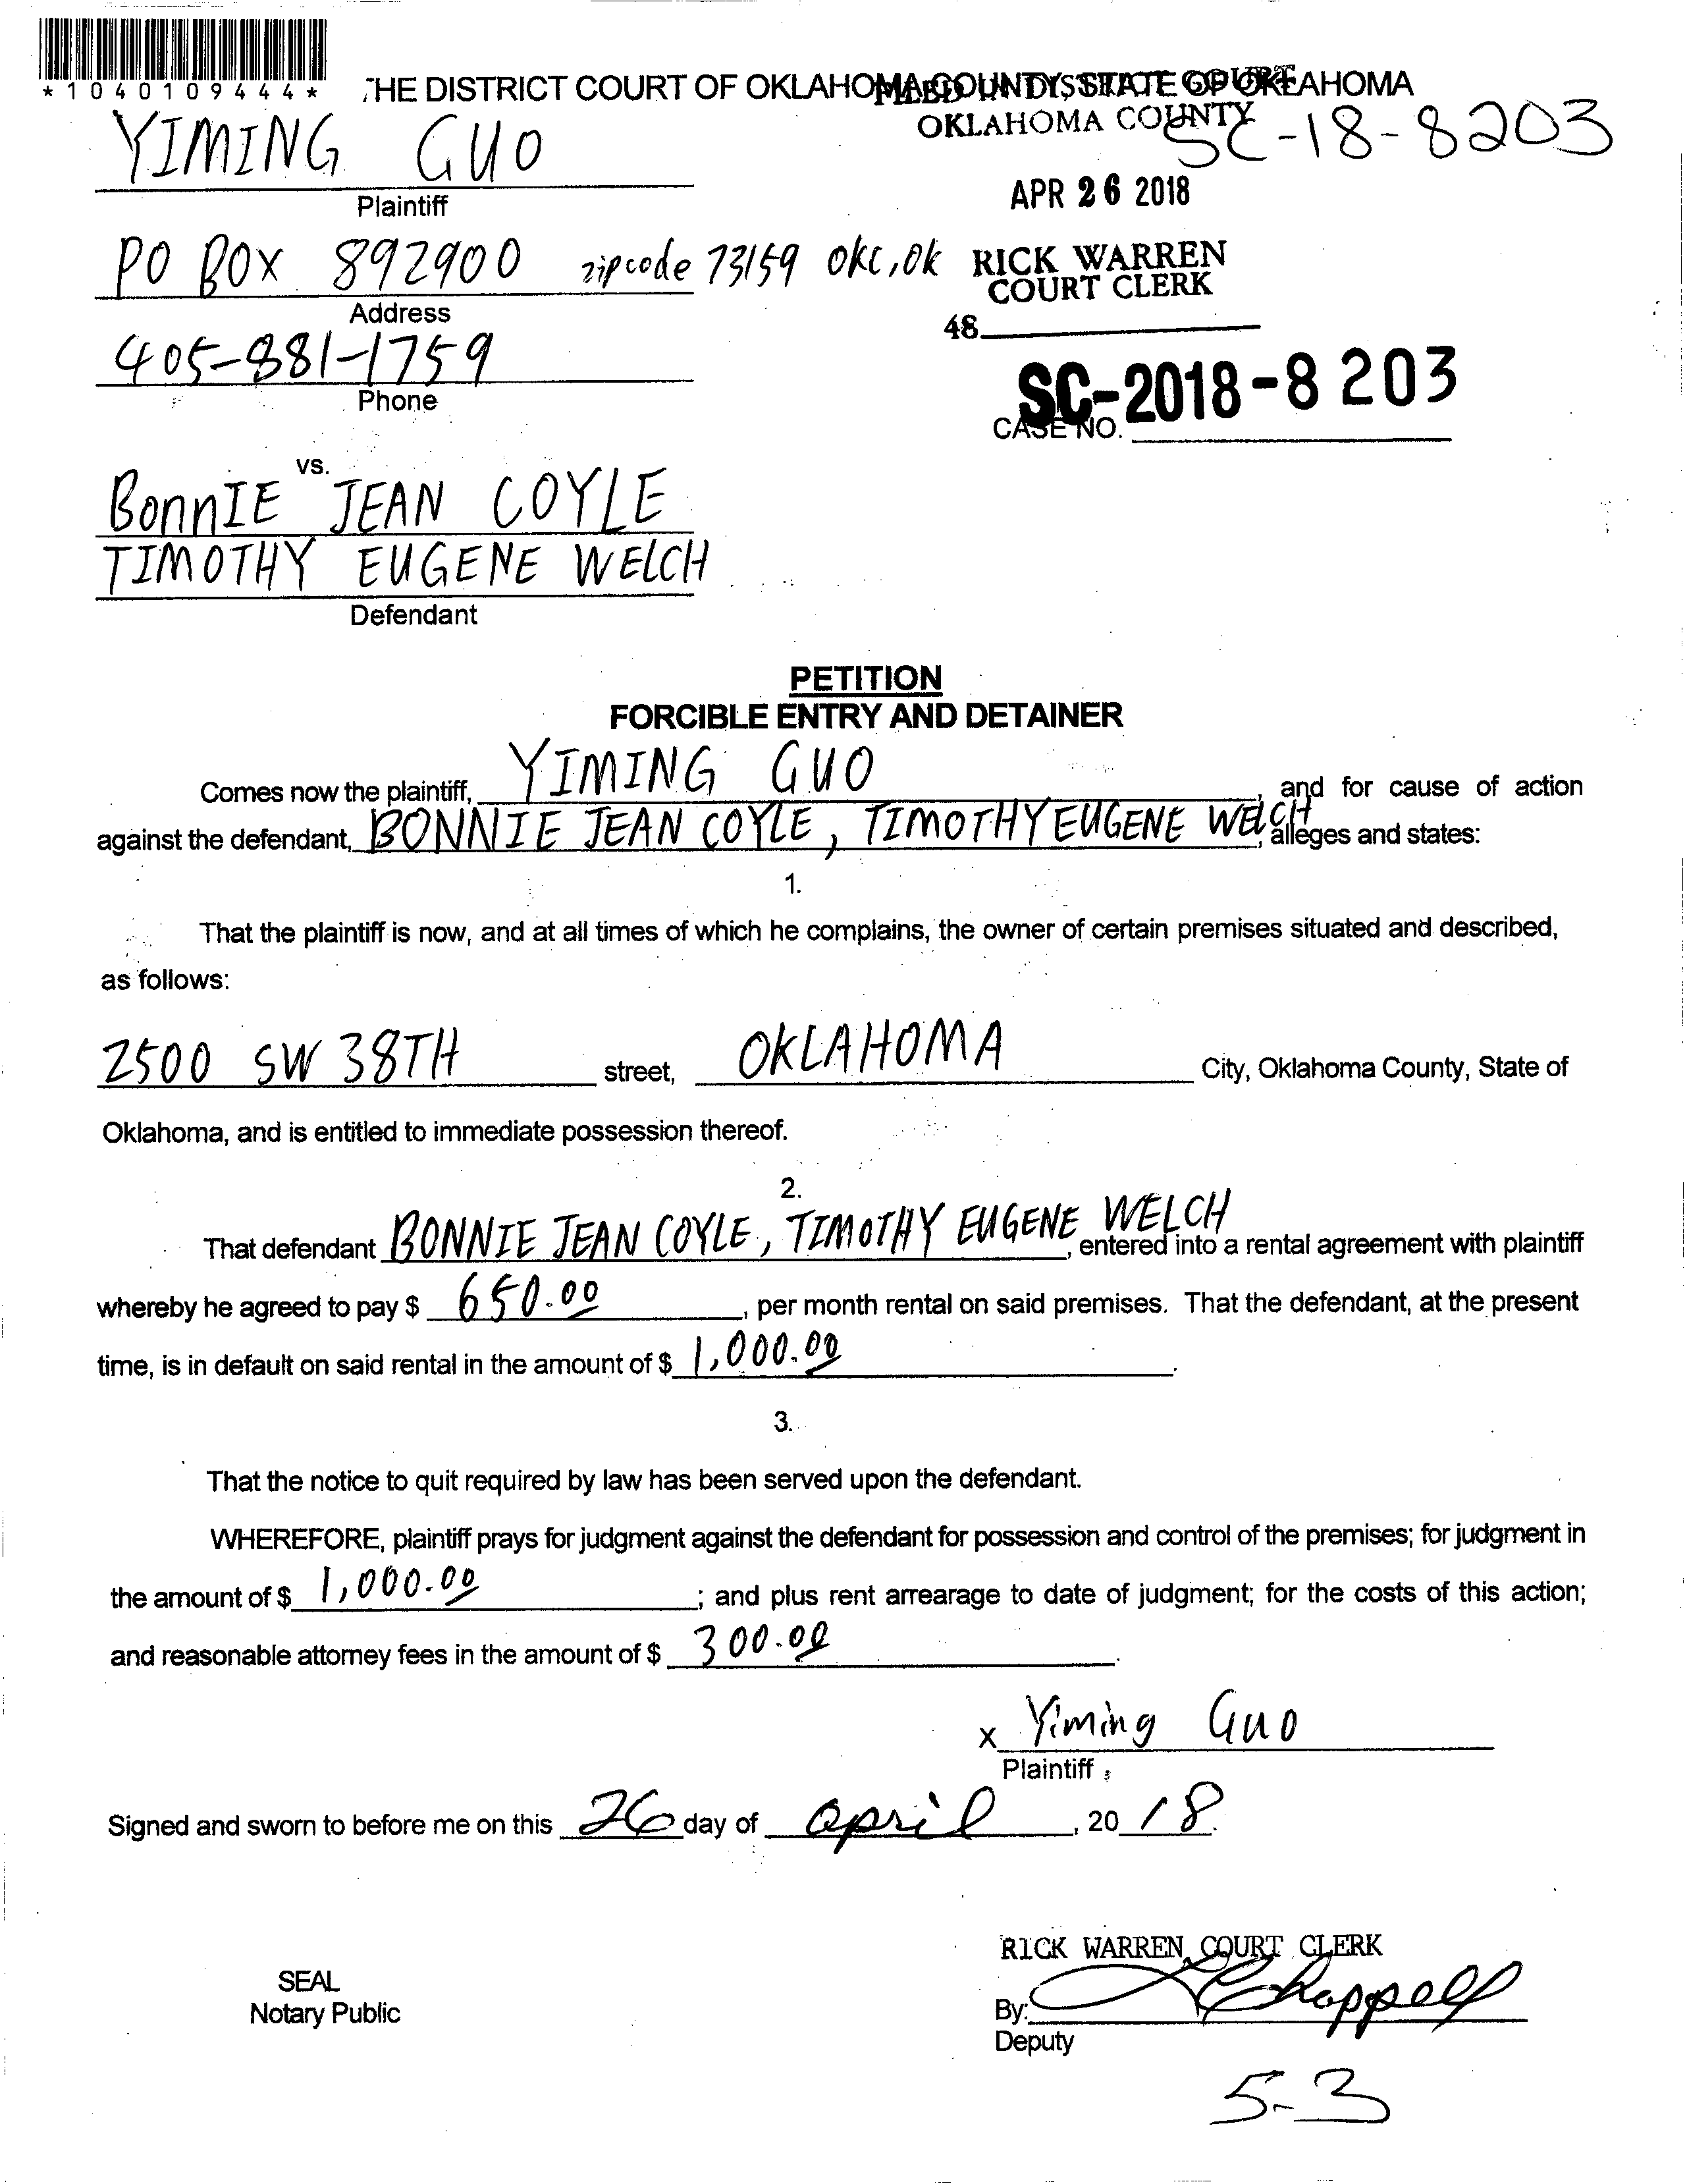 *1040109444*
THE DISTRICT COURT OF OKLAHOMA COUNTY, STATE OF OKLAHOMA
FILED IN DISTRICT COURT
OKLAHOMA COUNTY
SC-18-8203
YIMING GUO
Plaintiff
APR 26 2018
PO BOX 892900 zipcode 73159 OKC, OK
RICK WARREN
COURT CLERK
Address
48
405-881-1759
Phone
SC-2018-8203
CASE NO.
vs.
BonnIE JEAN COYLE
TIMOTHY EUGENE WELCH
Defendant
PETITION
FORCIBLE ENTRY AND DETAINER
Comes now the plaintiff, YIMING GUO, and for cause of action
against the defendant, BONNIE JEAN COYLE, TIMOTHY EUGENE WELCH, alleges and states:
1.
That the plaintiff is now, and at all times of which he complains, the owner of certain premises situated and described,
as follows:
2500 SW 38TH street, OKLAHOMA City, Oklahoma County, State of
Oklahoma, and is entitled to immediate possession thereof.
2.
That defendant BONNIE JEAN COYLE, TIMOTHY EUGENE WELCH, entered into a rental agreement with plaintiff
whereby he agreed to pay $ 650.00, per month rental on said premises. That the defendant, at the present
time, is in default on said rental in the amount of $ 1,000.00.
3.
That the notice to quit required by law has been served upon the defendant.
WHEREFORE, plaintiff prays for judgment against the defendant for possession and control of the premises; for judgment in
the amount of $ 1,000.00; and plus rent arrearage to date of judgment; for the costs of this action;
and reasonable attorney fees in the amount of $ 300.00.
x Yiming Guo
Plaintiff
Signed and sworn to before me on this 26 day of april, 20 18.
RICK WARREN, COURT CLERK
SEAL
Notary Public
By: Chappell
Deputy
5-3